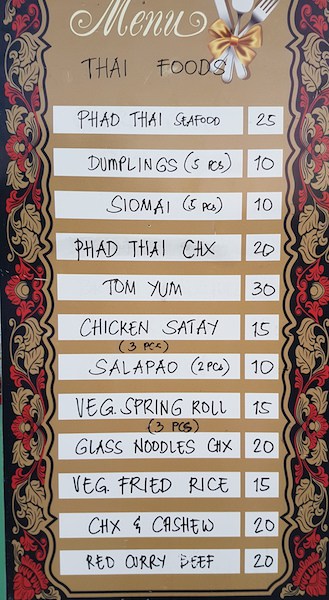 Menu
THAI FOODS
PHAD THAI SEAFOOD 25
DUMPLINGS (5 PCS) 10
SIOMAI (5 PCS) 10
PHAD THAI CHX 20
TOM YUM 30
CHICKEN SATAY 15
(3 PCS)
SALAPAO (2 PCS) 10
VEG. SPRING ROLL 15
(3 PCS)
GLASS NOODLES CHX 20
VEG. FRIED RICE 15
CHX & CASHEW 20
RED CURRY BEEF 20